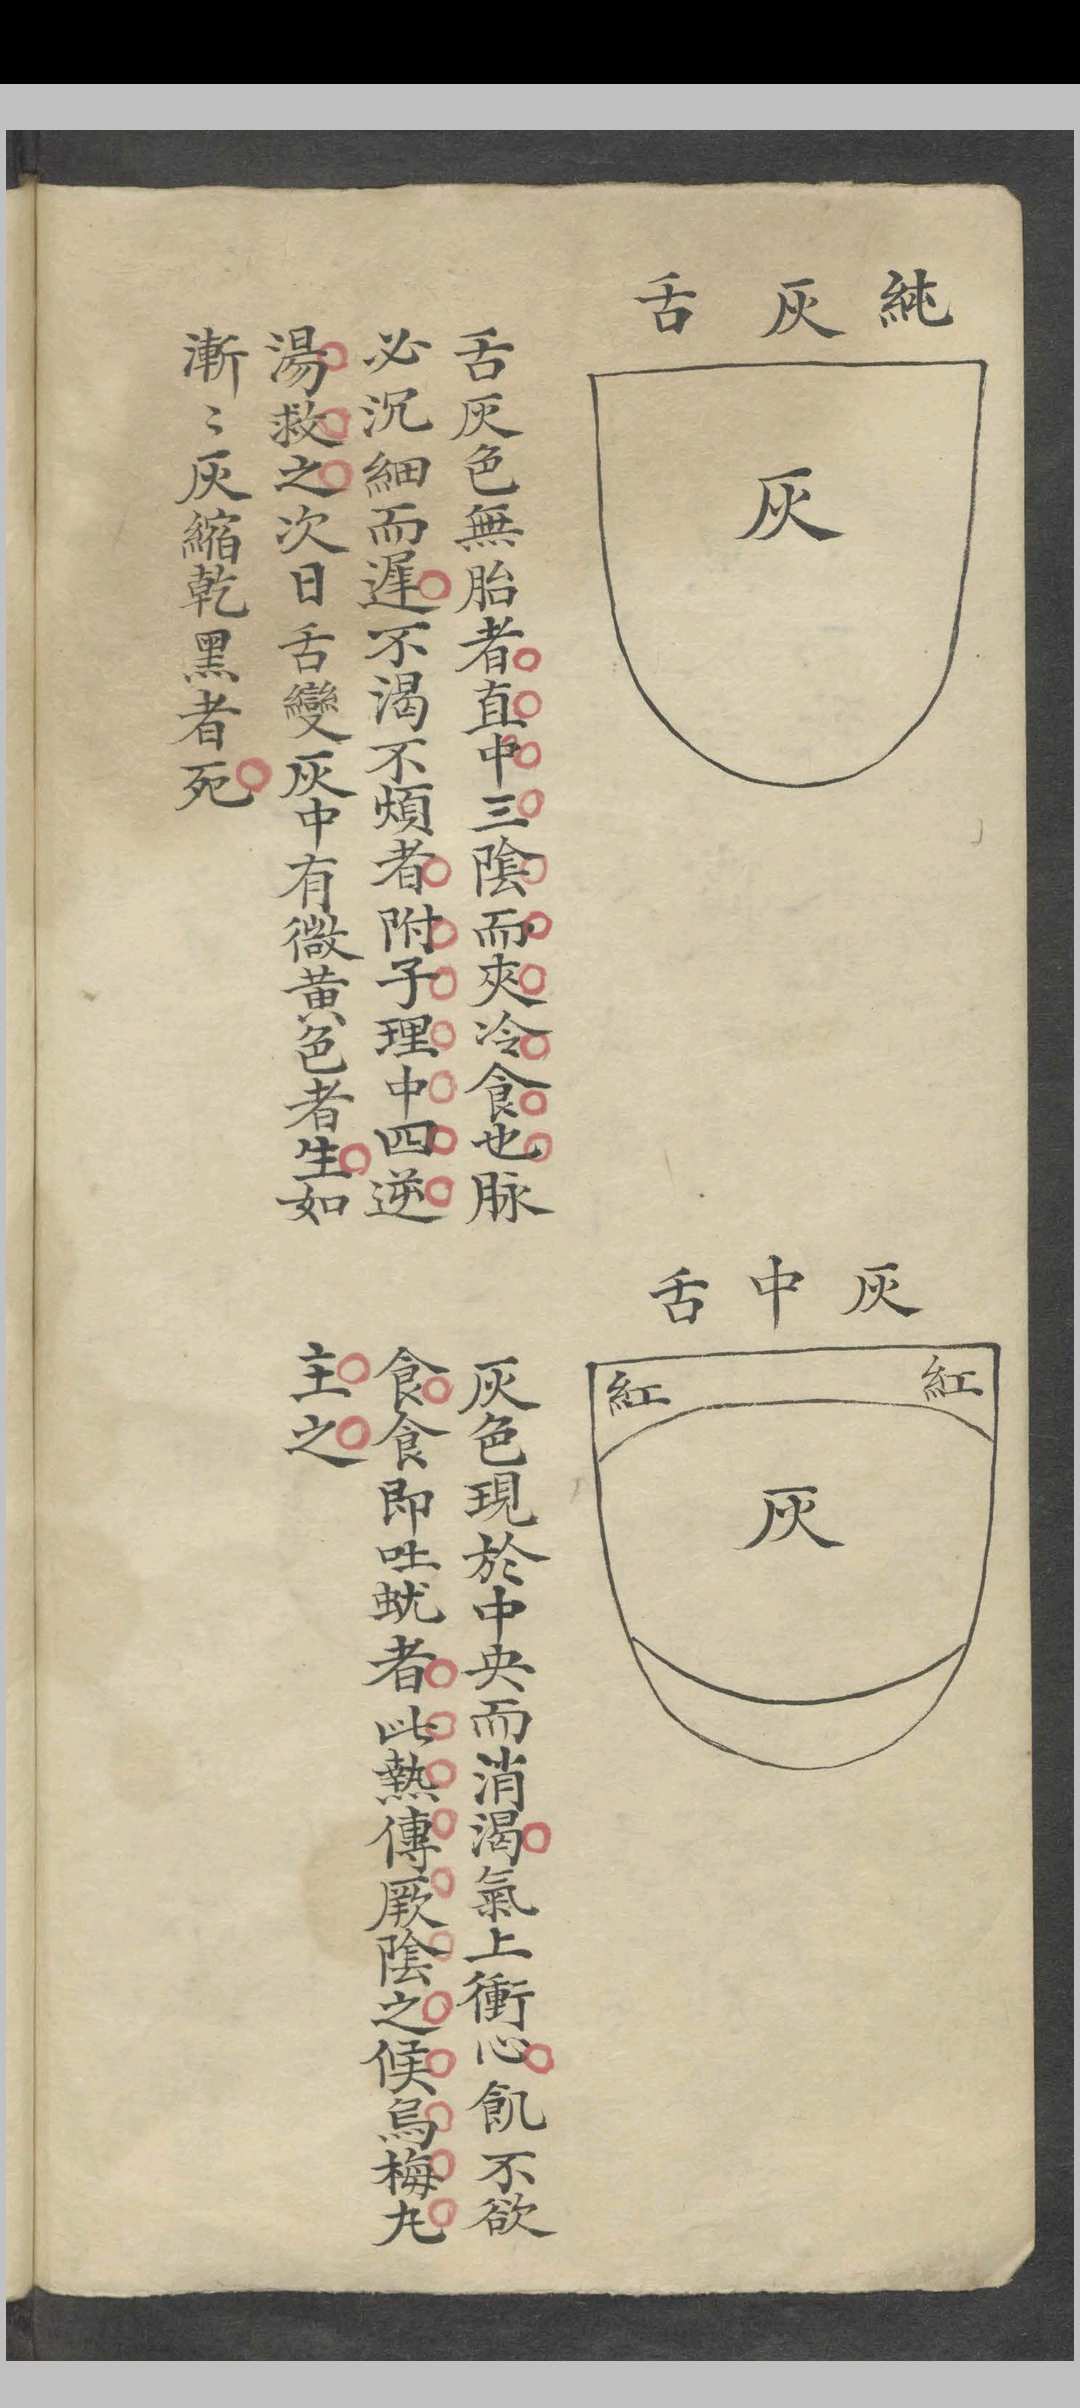 純灰舌
灰
舌灰色無胎者直中三陰而夾冷食也脉
必沉細而遲不渴不煩者附子理中四逆
湯救之次日舌變灰中有微黃色者生如
漸〻灰縮乾黑者死
灰中舌
紅
紅
灰
灰色現於中央而消渴氣上衝心飢不欲
食食即吐蚘者此熱傳厥陰之候烏梅丸
主之